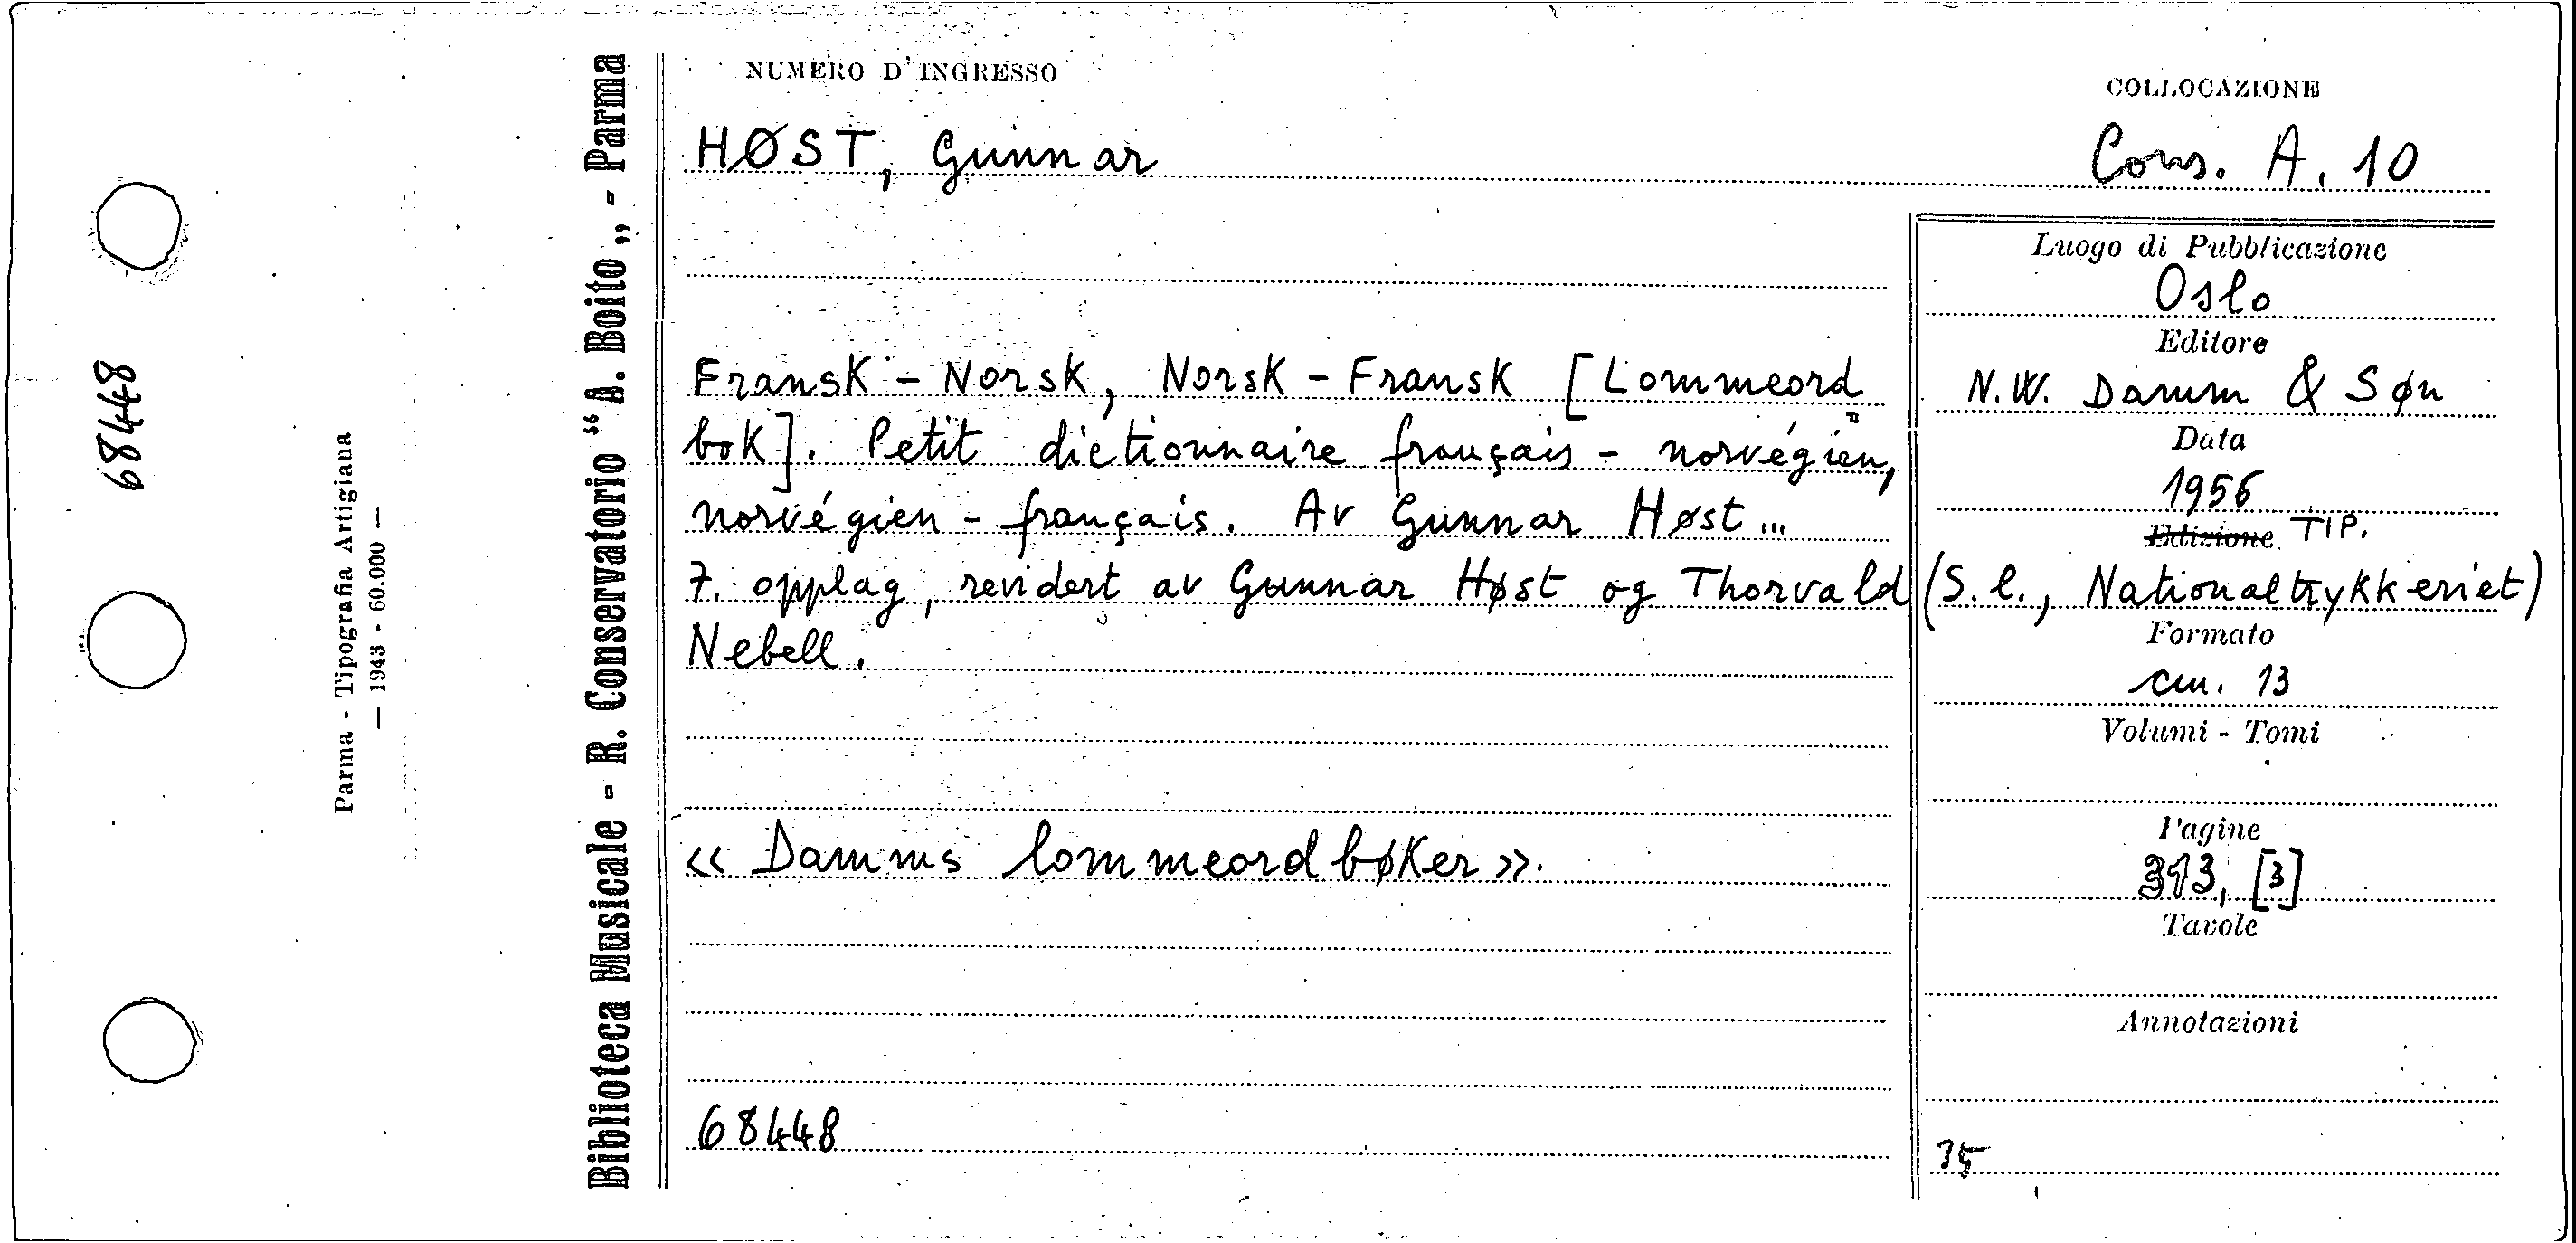 68448
Parma - Tipografia Artigiana
— 1943 - 60.000 —
Biblioteca Musicale - R. Conservatorio “A. Boito„ - Parma
NUMERO D'INGRESSO
COLLOCAZIONE
HØST, Gunnar
Cons. A. 10
Fransk - Norsk, Norsk - Fransk [Lommeord
bok]. Petit dictionnaire français - norvégien,
norvégien - français. Av Gunnar Høst ...
7. opplag, revidert av Gunnar Høst og Thorvald
Nebell.
« Damms lommeordbøker ».
68448
Luogo di Pubblicazione
Oslo
Editore
N.W. Damm & Søn
Data
1956
Edizione TIP.
(S. l., Nationaltrykkeriet)
Formato
cm. 13
Volumi - Tomi
Pagine
313, [3]
Tavole
Annotazioni